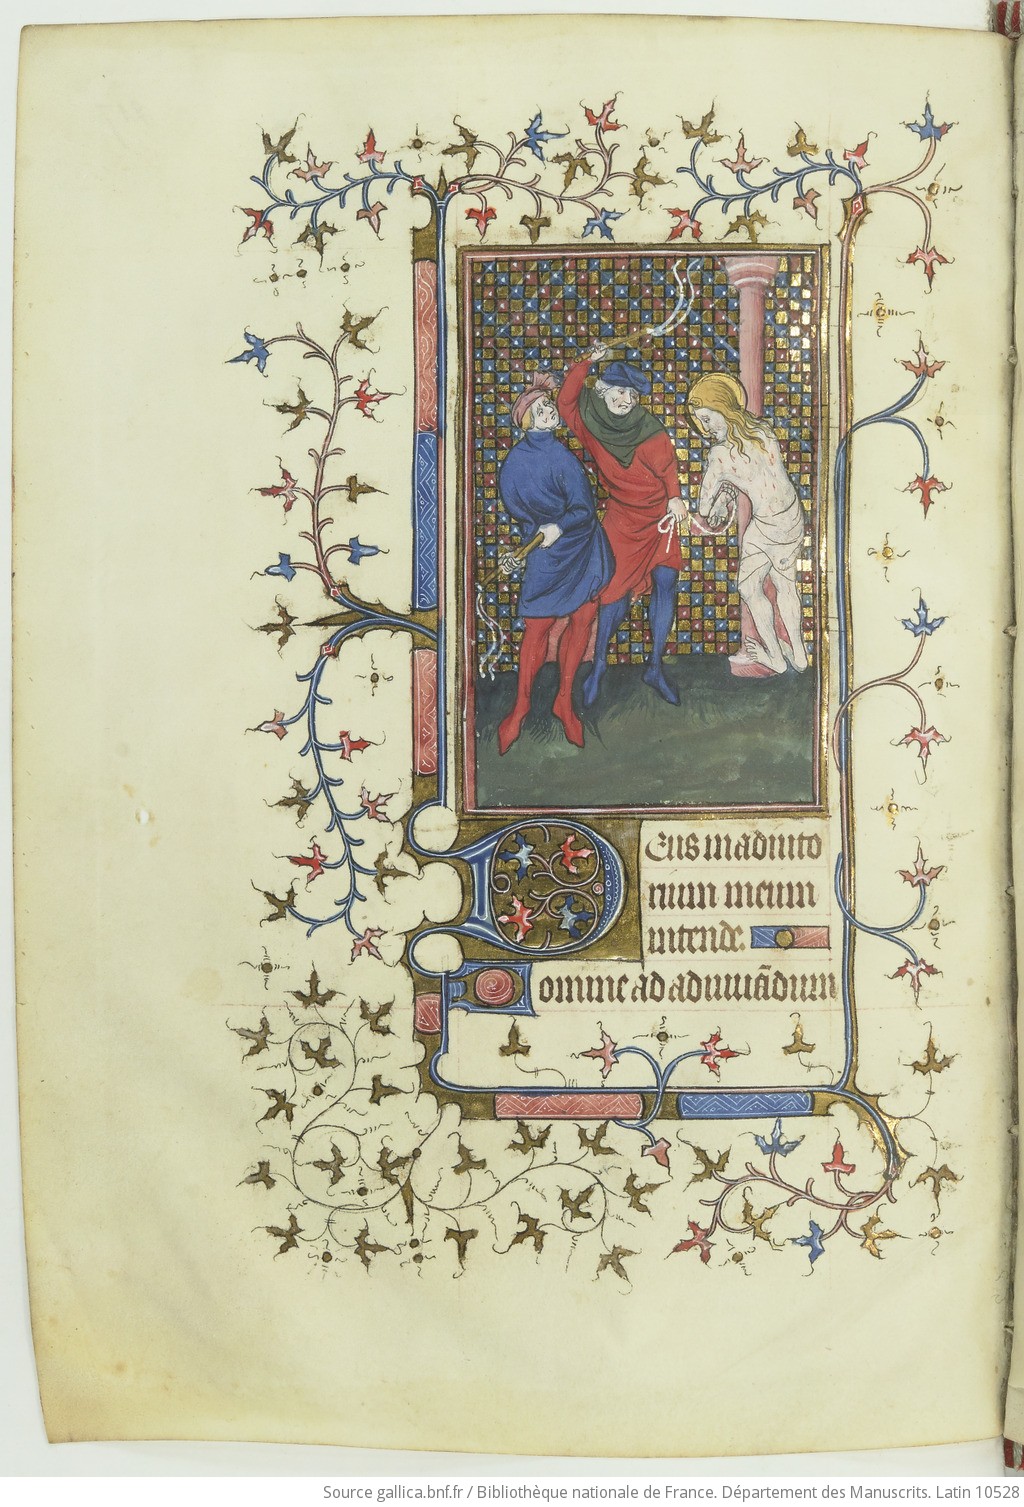 Deus in adiuto
rium meum
intende.
Domine ad adiuuãdum
Source gallica.bnf.fr / Bibliothèque nationale de France. Département des Manuscrits. Latin 10528